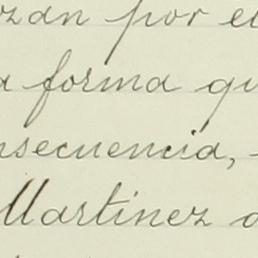 zan por el
a forma qu
nsecuencia,
Martinez